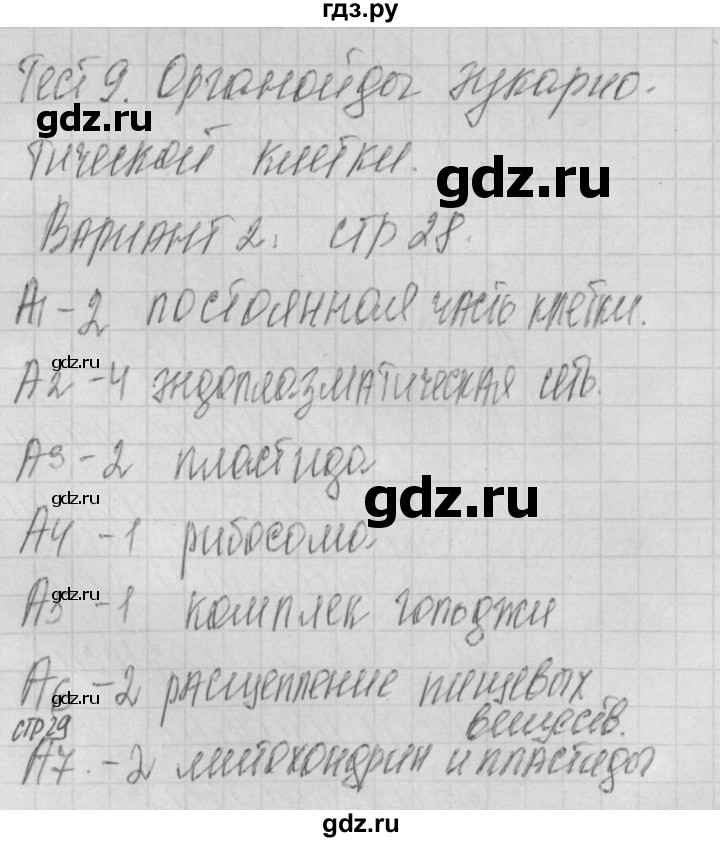 гдз.ру
Тест 9. Органоиды эукарио-
gdz.ru
тической клетки.
gdz.ru
Вариант 2. стр 28.
А1 - 2 постоянная часть клетки.
gdz.ru
А2 - 4 эндоплазматическая сеть.
А3 - 2 пластида
gdz.ru
gdz.ru
А4 - 1 рибосома
gdz.ru
А5 - 1 комплек гольджи
А6 - 2 расщепление пищевых
gdz.ru
стр 29 веществ.
А7. - 2 митохондрии и пластиды
gdz.ru
gdz.ru